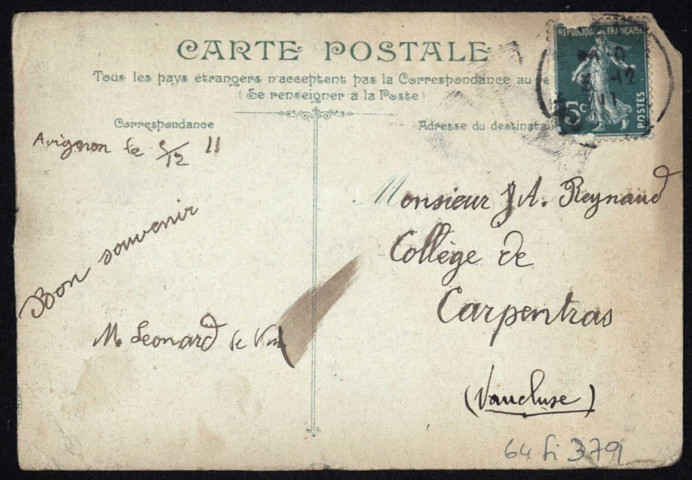 CARTE POSTALE
Tous les pays étrangers n'acceptent pas la Correspondance au
(Se renseigner à la Poste)
Correspondance
Avignon le /12 11
Bon souvenir
M. Leonard de
Adresse du destinatai
Monsieur J.A. Reynaud
Collège de
Carpentras
(Vaucluse)
64 fi 379
REPUBLIQUE FRANÇAISE
5c
POSTES